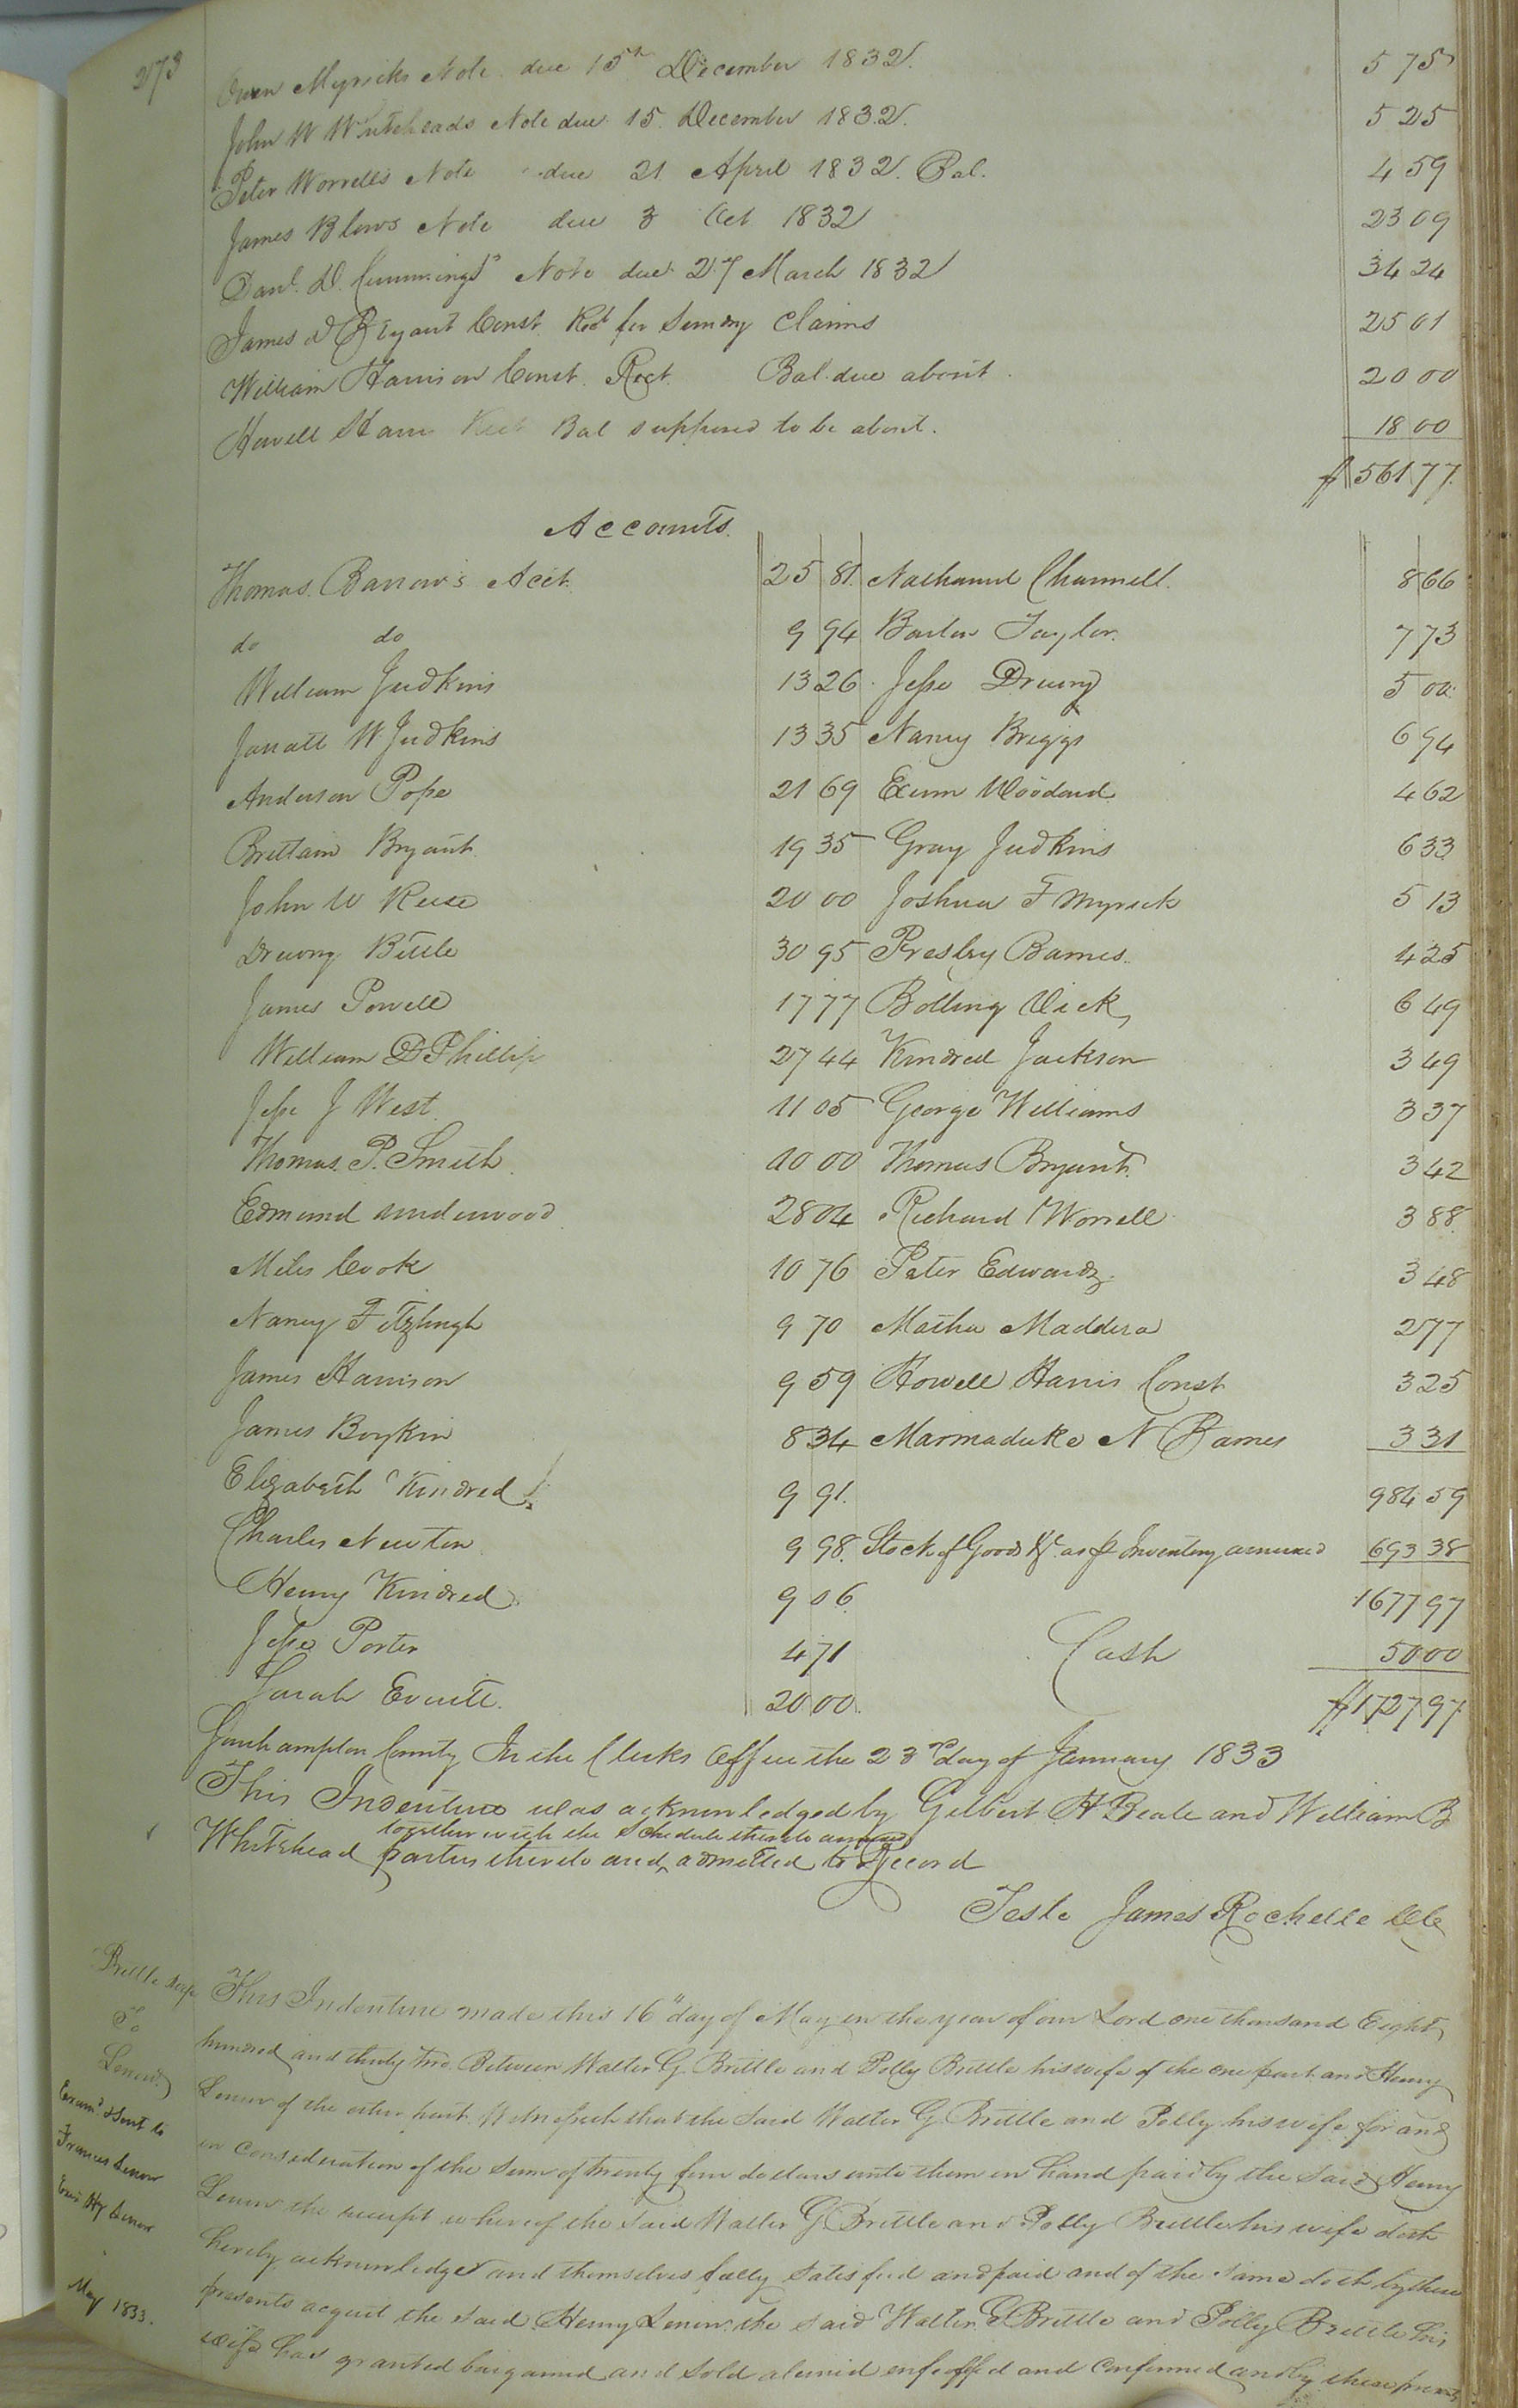 273
Owen Myricks Note due 15th December 1832. 5 75
John W Whiteheads Note due 15. December 1832. 5 25
Peter Worrells Note due 21 April 1832. Bal. 4 59
James Blows Note due 3 Oct 1832 23 09
Danl. D. Cummings' Note due 27 March 1832 34 24
James D Bryant Const. Rect for Sundry Claims 25 01
William Harrison Const. Rect. Bal. due about. 20 00
Howell Harris Rect Bal supposed to be about. 18 00
$ 561 77
Accounts.
Thomas Barrow's Acct. 25 81. Nathaniel Channell. 8 66
do do 9 94 Barlow Taylor. 7 73
William Judkins 13 26 Jesse Drewry 5 00
Jarratt W Judkins 13 35 Nancy Briggs 6 94
Anderson Pope 21 69 Exum Woodard 4 62
Brittain Bryant. 19 35 Gray Judkins 6 33
John W Reese 20 00 Joshua F Myrick 5 13
Drewry Bittle 30 95 Presley Barnes. 4 25
James Powell 17 77 Bolling Vick, 6 49
William D Phillips 27 44 Kindred Jackson 3 49
Jesse J West. 11 05 George Williams 3 37
Thomas P. Smith. 10 00 Thomas Bryant. 3 42
Edmund Underwood 28 04 Richard Worrell 3 88.
Miles Cook 10 76 Peter Edwards. 3 48
Nancy Fitzhugh 9 70 Matha Maddera 2 77
James Harrison 9 59 Howell Harris Const 3 25
James Boykin 8 34 Marmaduke N Barnes 3 31
Elizabeth Kindred 9 91. 984 59
Charles Newton 9 98. Stock of Goods &c. as pr Inventory annexed 693 38
Henry Kindred 9 06. 1677 97
Jesse Porter 4 71 Cash 50 00
Sarah Everitt. 20 00. $1727 97
Southampton County In the Clerks Office the 23rd day of January 1833
This Indenture was acknowledged by Gilbert H Beale and William B
together with the Schedule thereto annexed
Whitehead parties thereto and ^ admitted to Record
Teste James Rochelle Clk
Brittle & wife
To
Lenow
Examd & Sent to
Frances Lenow
Exr Hy Lenow
May 1833.
This Indenture made this 16" day of May in the year of our Lord one thousand Eight
hundred and thirty two Between Walter G. Brittle and Polly Brittle his wife of the one part and Henry
Lenow of the other part Witnesseth that the said Walter G. Brittle and Polly his wife for and
in consideration of the sum of twenty four dollars unto them in hand paid by the said Henry
Lenow the receipt whereof the said Walter G Brittle and Polly Brittle his wife doth
hereby acknowledge and themselves fully satisfied and paid and of the same doth by these
presents acquit the said Henry Lenow. the said Walter G Brittle and Polly Brittle his
wife has granted bargained and sold aliened enfeoffed and confirmed and by these presents